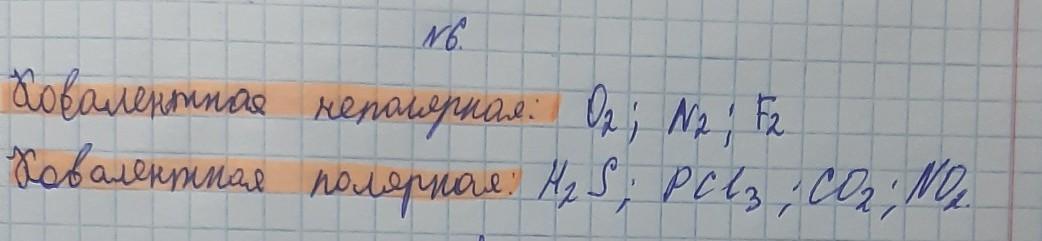 №6.
Ковалентная неполярная: O₂; N₂; F₂
Ковалентная полярная: H₂S; PCl₃; CO₂; NO₂.